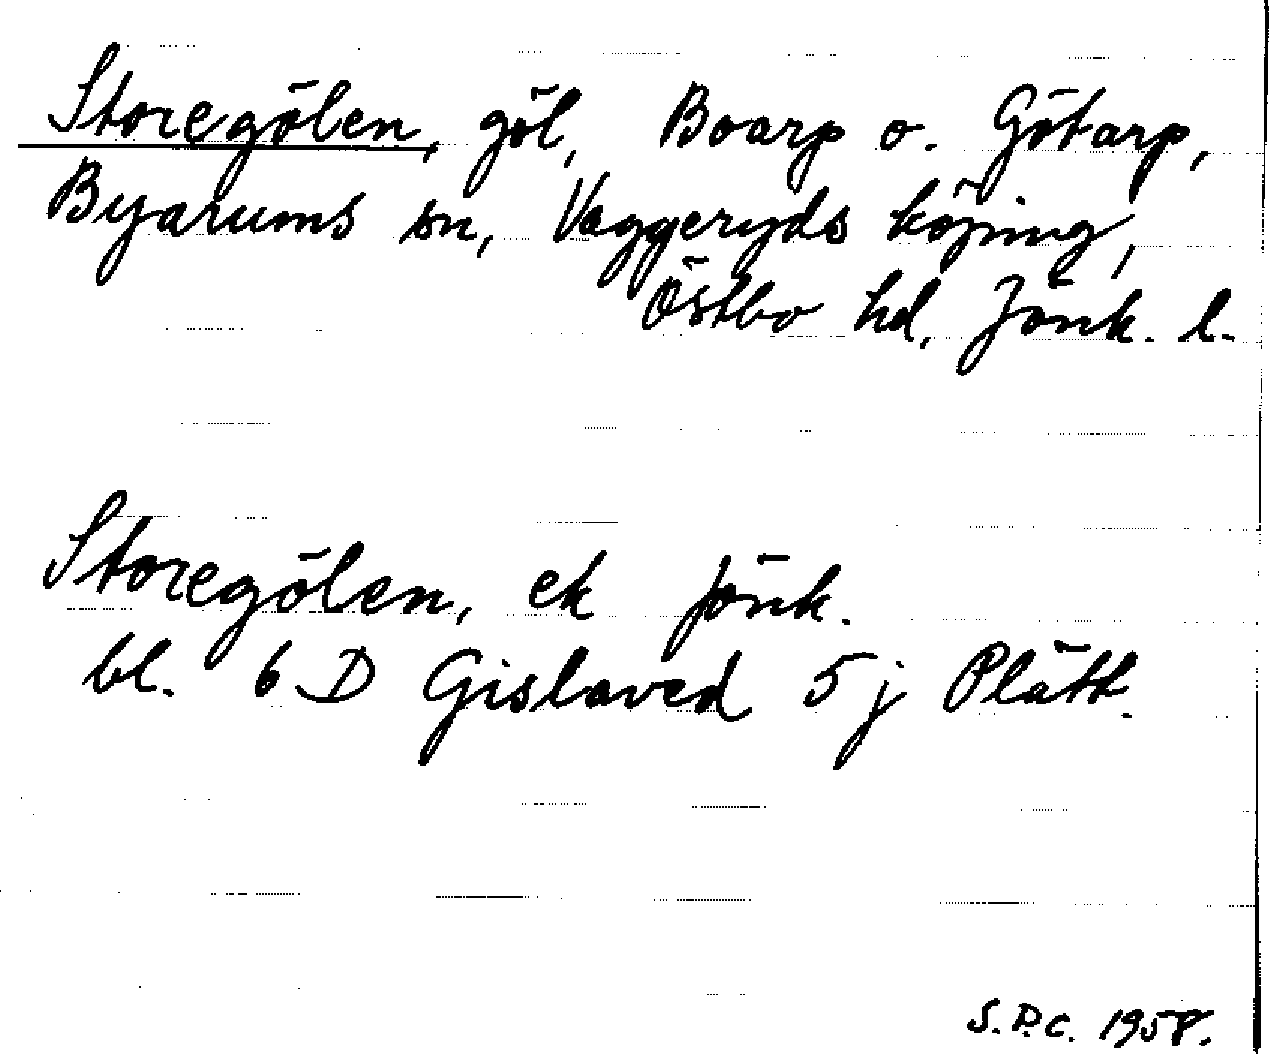 Storegölen, göl, Boarp o. Götarp,
Byarums sn, Vaggeryds köping,
Östbo hd, Jönk. l.
Storegölen, ek Jönk.
bl. 6 D Gislaved 5 j Plätt.
S.D.C. 1958.